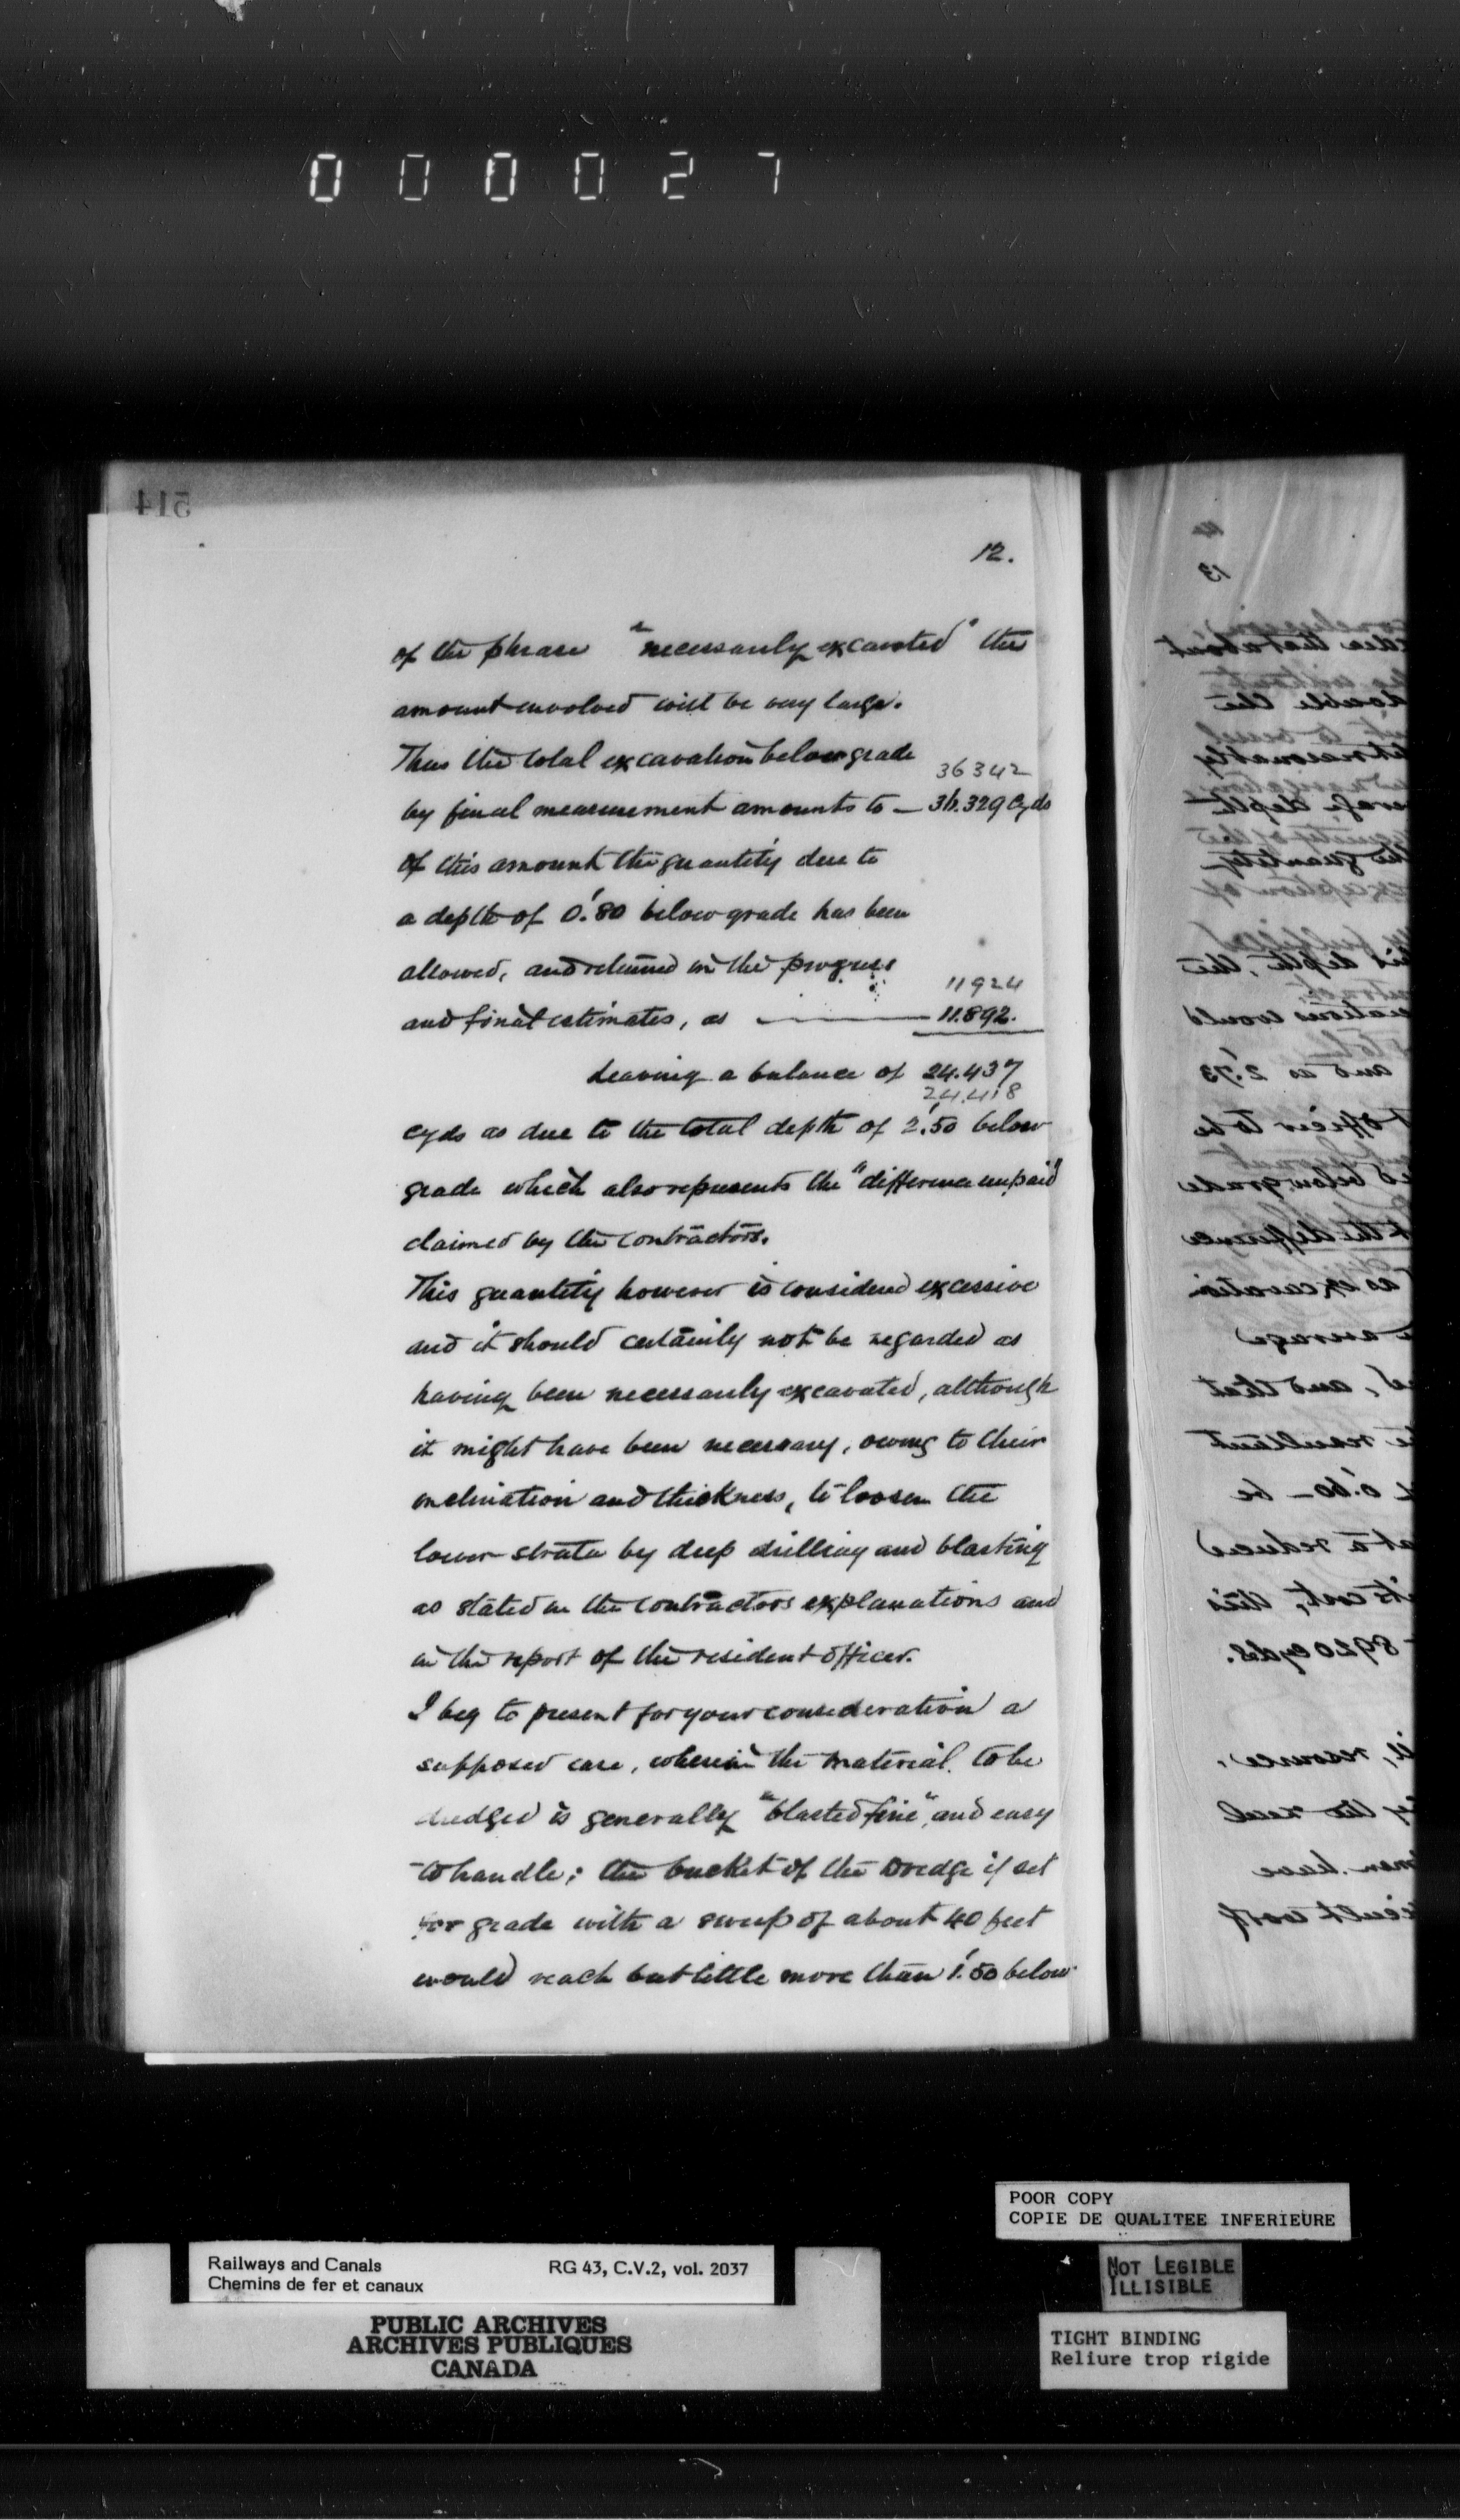 000027
514
12.
of the phrase "necessarily excavated" the
amount involved will be very large.
Thus the total excavation below grade
36342
by final measurement amounts to — 36.329 Cyds
Of this amount the quantity due to
a depth of 0'.80 below grade has been
allowed, and returned in the progress
11924
and final estimates, as — 11.892.
Leaving a balance of 24.437
24.418
cyds as due to the total depth of 2'.50 below
grade which also represents the "difference unpaid"
claimed by the contractors.
This quantity however is considered excessive
and it should certainly not be regarded as
having been necessarily excavated, although
it might have been necessary, owing to their
inclination and thickness, to loosen the
lower strata by deep drilling and blasting
as stated in the contractors explanations and
in the report of the resident officer.
I beg to present for your consideration a
supposed case, wherein the material to be
dredged is generally "blasted fine", and easy
to handle; the bucket of the Dredge if set
for grade with a sweep of about 40 feet
would reach but little more than 1'.50 below
13
that about
double the
depth
the quantity
depth, the
would
and as 2'.73
officer to be
below grade
the difference
as excavation
average
and that
resultant
0'.60 — be
at a reduced
its cost, this
8920 cyds.
resource,
have
POOR COPY
COPIE DE QUALITEE INFERIEURE
NOT LEGIBLE
ILLISIBLE
TIGHT BINDING
Reliure trop rigide
Railways and Canals RG 43, C.V.2, vol. 2037
Chemins de fer et canaux
PUBLIC ARCHIVES
ARCHIVES PUBLIQUES
CANADA